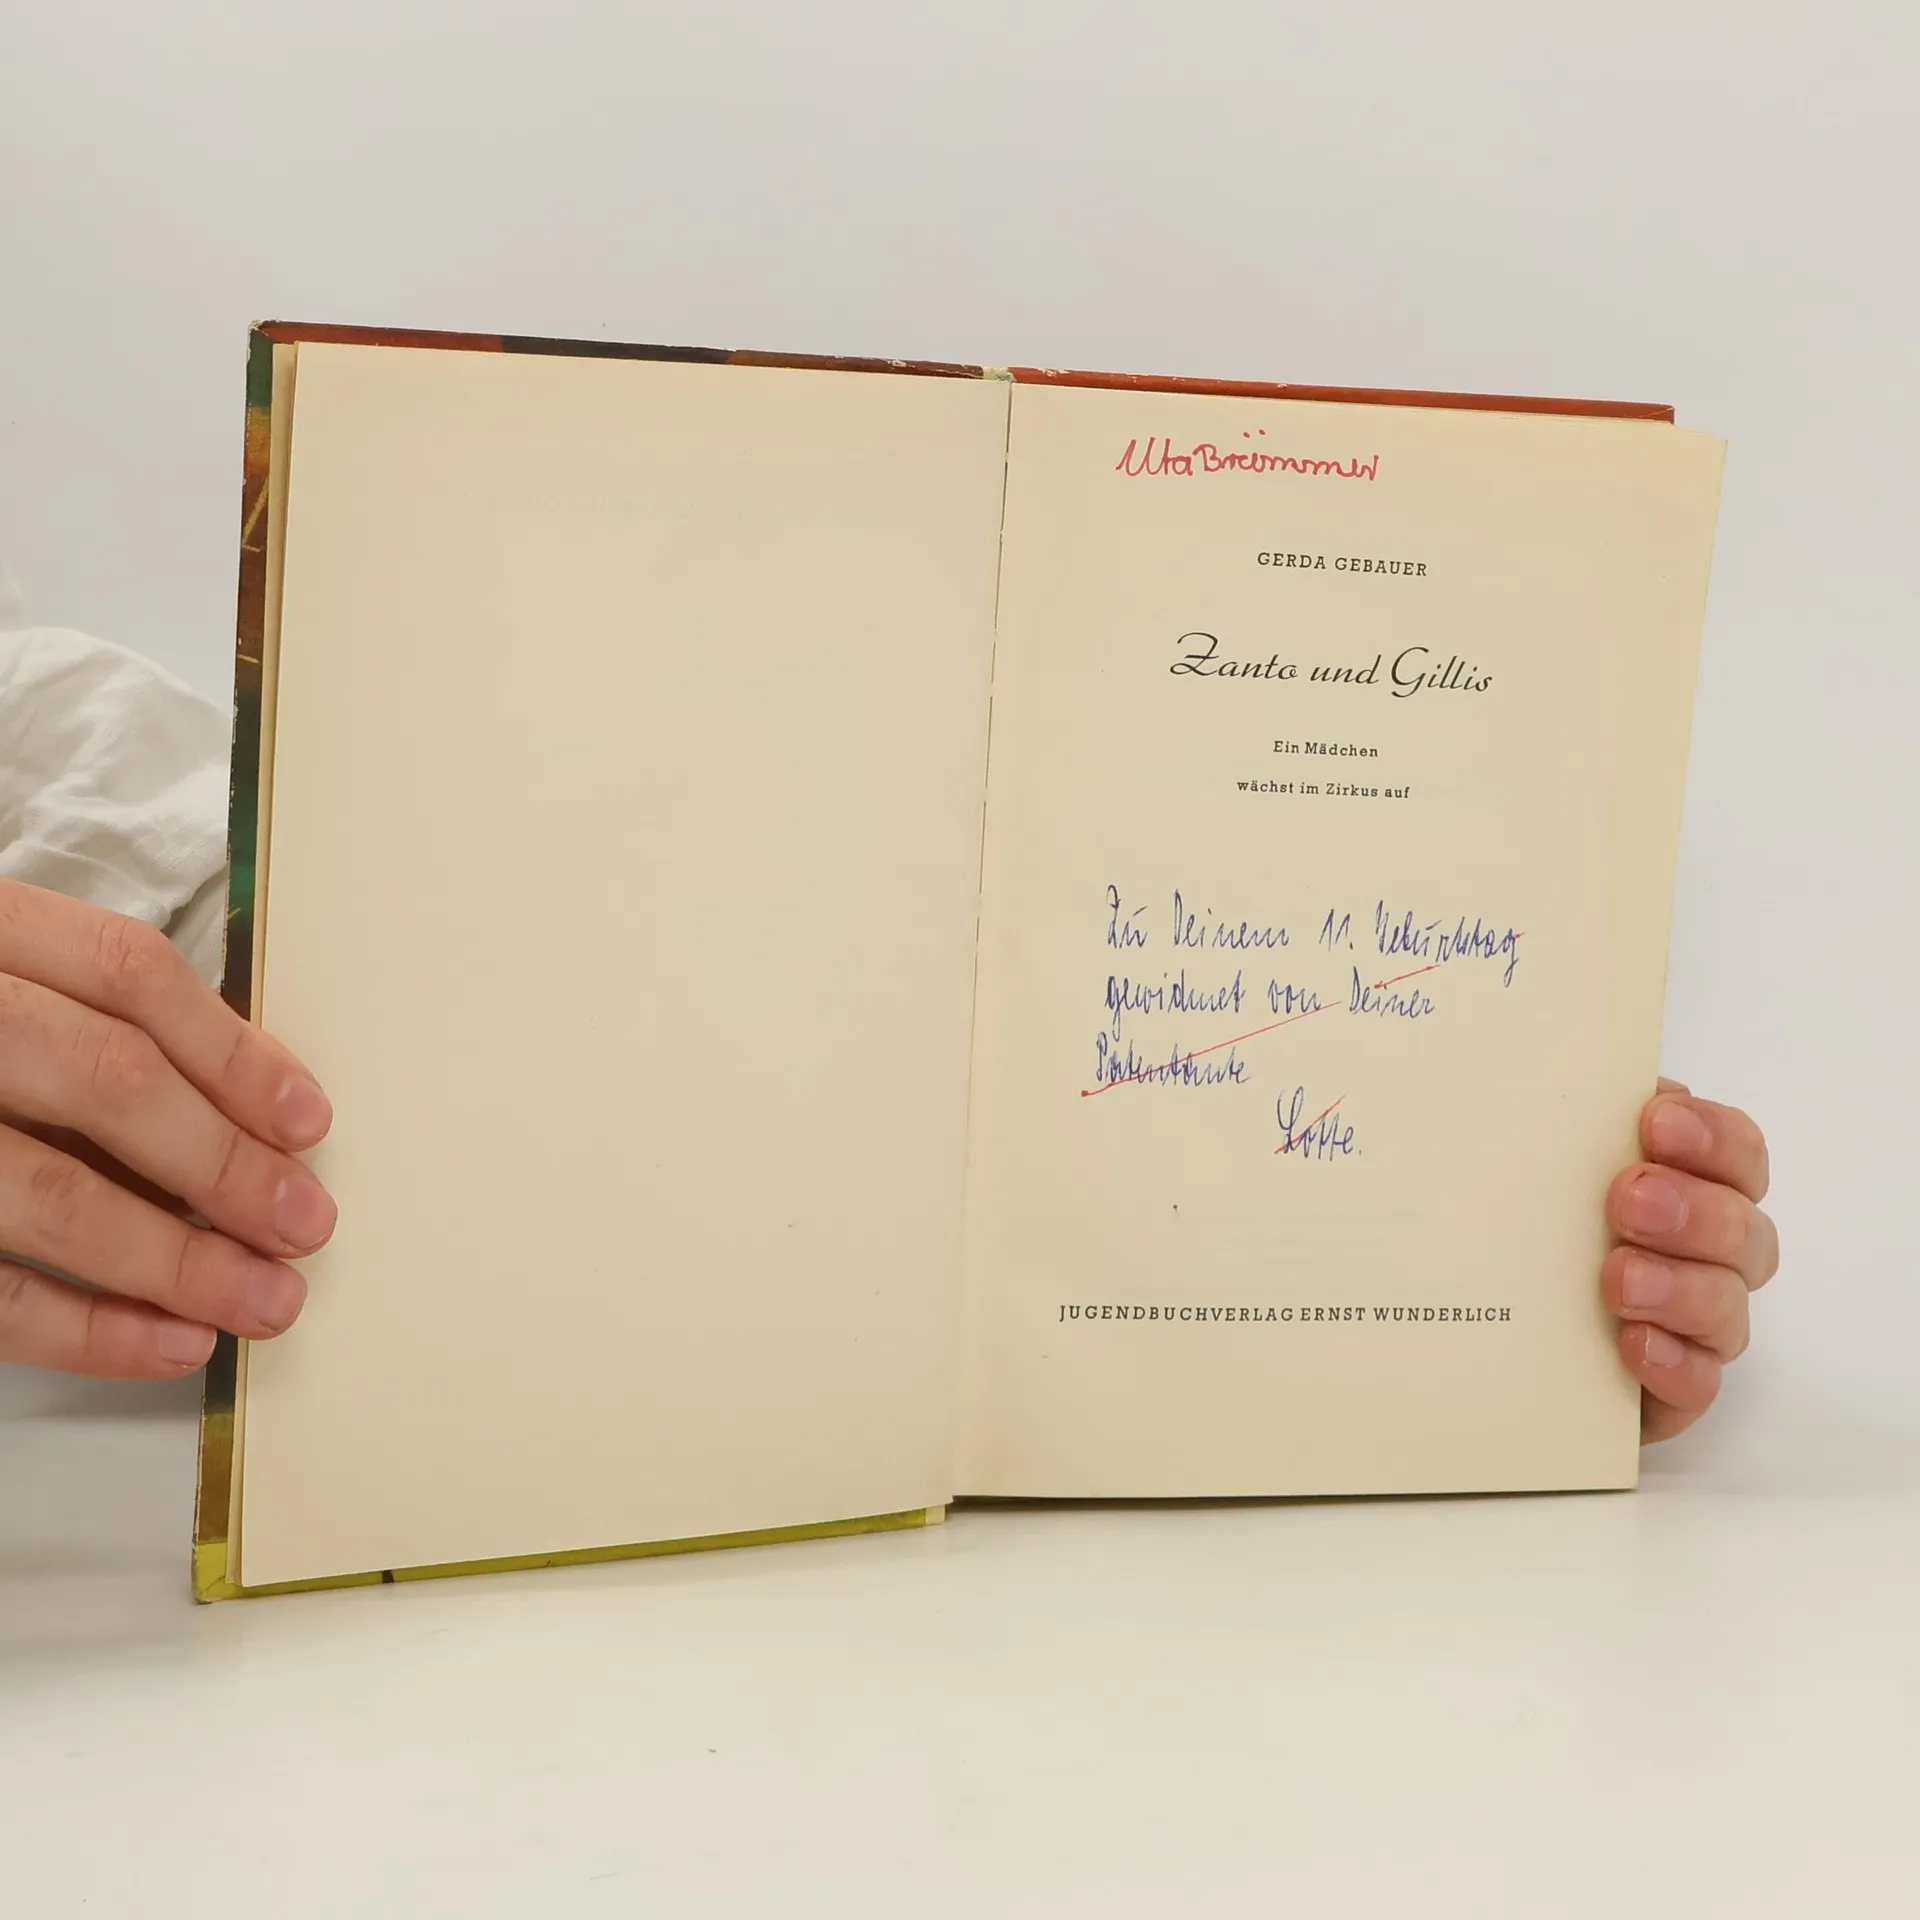 Uta Brömmer
GERDA GEBAUER
Zanto und Gillis
Ein Mädchen
wächst im Zirkus auf
Zu Deinem 11. Geburtstag
gewidmet von Deiner
Patentante
Lotte.
JUGENDBUCHVERLAG ERNST WUNDERLICH